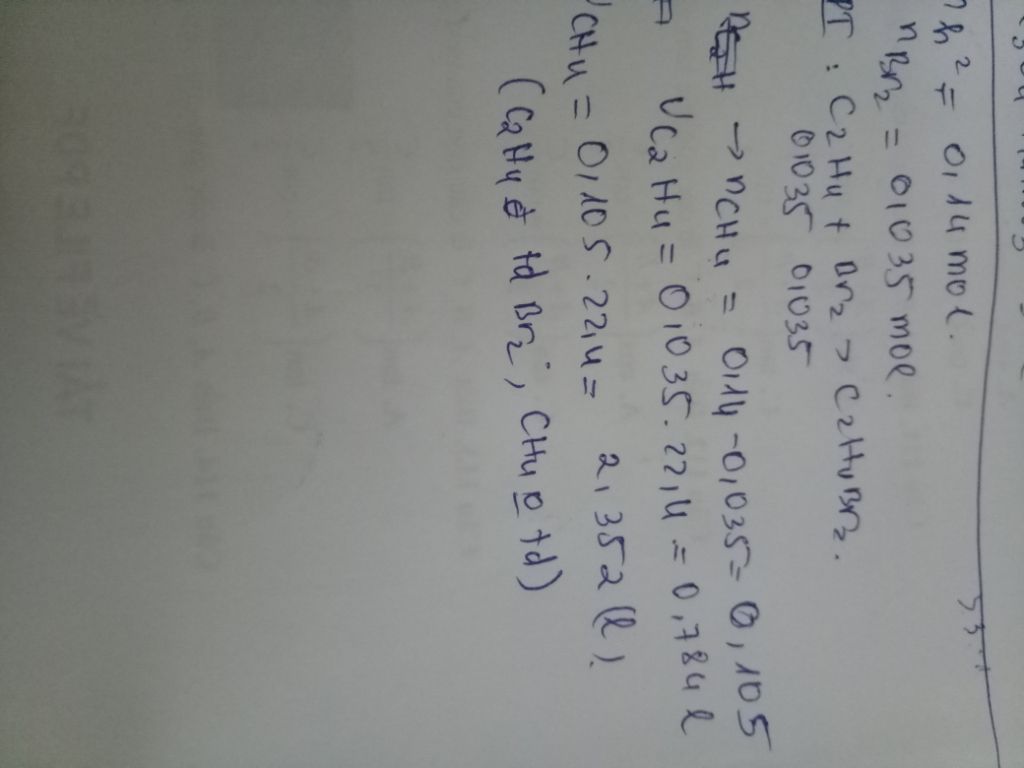 n h² = 0,14 mol.
nBr₂ = 0,035 mol.
PT : C₂H₄ + Br₂ > C₂H₄Br₂.
0,035 0,035
→ nCH₄ = 0,14 - 0,035 = 0,105
VC₂H₄ = 0,035 . 22,4 = 0,784 l
VCH₄ = 0,105 . 22,4 = 2,352 (l).
(C₂H₄ td Br₂, CH₄ o td)